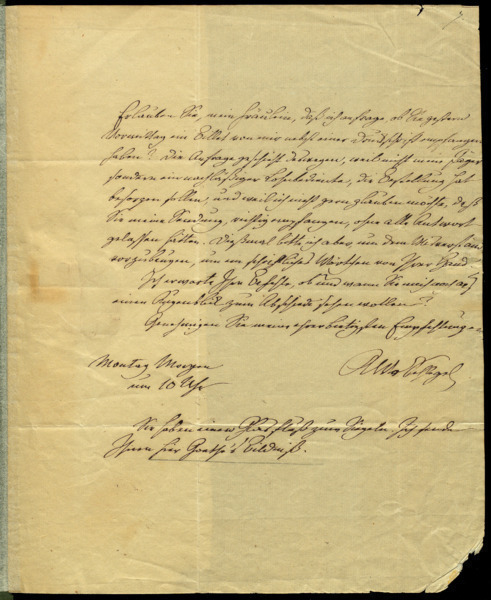 Erlauben Sie, mein Fräulein, daß ich anfrage, ob Sie gestern
Vormittag ein Billet von mir nebst einer Druckschrift empfangen
haben? Die Anfrage geschieht deswegen, weil nicht mein Jäger
sondern ein nachläßiger Lohnbediente, die Bestellung hat
besorgen sollen, und weil ich nicht gern glauben möchte, daß
Sie meine Sendung richtig empfangen, ohne alle Antwort
gelassen hätten. Diesmal bitte ich aber um dem
vorzubeugen, um ein schriftliches Wörtchen von Ihrer Hand.
Ich erwarte Ihre Befehle, ob und wann Sie mich noch auf
einen Augenblick zum Abschiede sehen wollen?
Genehmigen Sie meine ehrerbietigsten Empfehlungen
AWv Schlegel
Montag Morgen
um 10 Uhr
Sie haben einen zum Siegeln Ich sende
Ihnen hier Goethe's Bildniß.